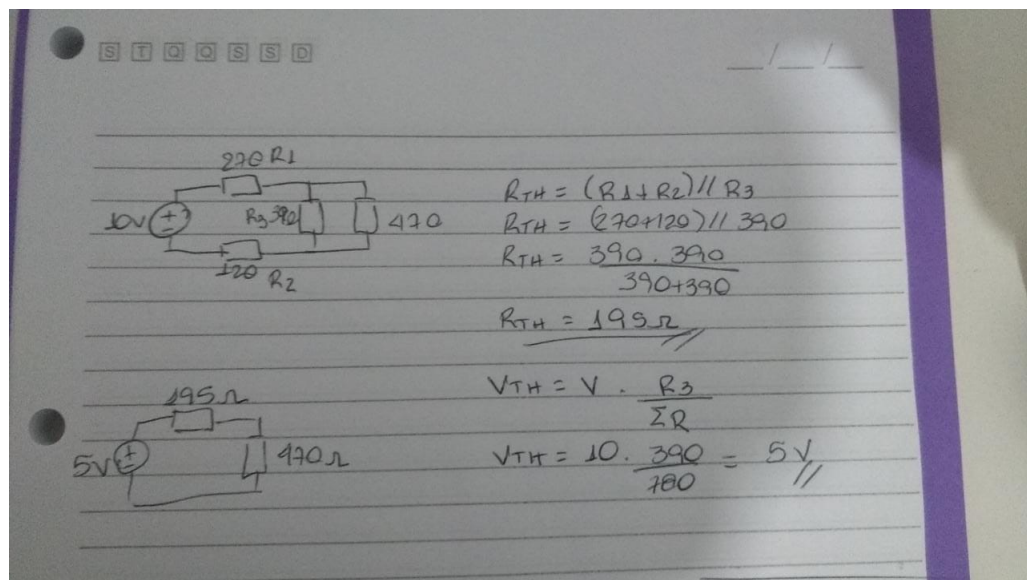 S T Q Q S S D
__/__/__
270 R1
10V
R3 390
470
120 R2
RTH = (R1+R2)//R3
RTH = (270+120)//390
RTH = 390 . 390
390+390
RTH = 195Ω
195Ω
5V
470Ω
VTH = V . R3
ΣR
VTH = 10 . 390 = 5V
780